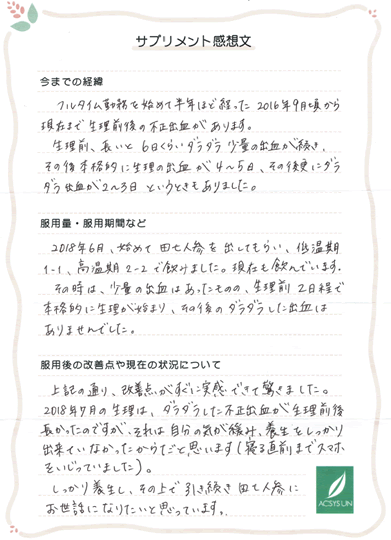 サプリメント感想文
今までの経緯
フルタイム勤務を始めて半年ほど経った2016年9月頃から
現在まで生理前後の不正出血があります。
生理前、長いと6日くらいダラダラ少量の出血が続き、
その後本格的に生理の出血が4〜5日、その後更にダラ
ダラ出血が2〜3日というときもありました。
服用量・服用期間など
2018年6月、始めて田七人参を出してもらい、低温期
1-1、高温期2-2で飲みました。現在も飲んでいます。
その時は、少量の出血はあったものの、生理前2日程で
本格的に生理が始まり、その後のダラダラした出血は
ありませんでした。
服用後の改善点や現在の状況について
上記の通り、改善点がすぐに実感できて驚きました。
2018年7月の生理は、ダラダラした不正出血が生理前後
長かったのですが、それは自分の気が緩み、養生をしっかり
出来ていなかったからだと思います(寝る直前までスマホ
をいじっていました)。
しっかり養生し、その上で引き続き田七人参に
お世話になりたいと思っています。
ACSYSUN